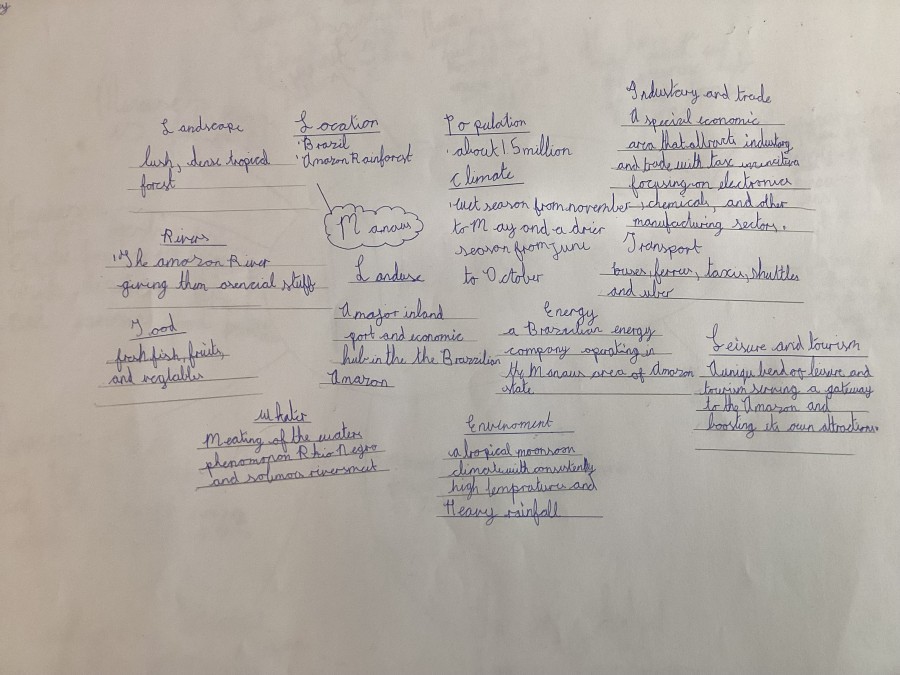 y
Landscape
lush, dense tropical
forest
Location
· Brazil
· Amazon Rainforest
Population
· about 15 million
Climate
· wet season from november
to May and a drier
season from June
to October
Industary and trade
A special economic
area that attracts industory
and trade with tax
focusing on electronics
, chemicals, and other
manufacturing sectors.
Transport
buses, ferries, taxis, shuttles
and uber
Manaus
Rivers
· The amazon River
giving them esencial stuff
Food
fresh fish, fruits,
and vegtables
Landuse
A major inland
port and economic
hub in the the Brazzilian
Amazon
Energy
a Brazailian energy
company oprating in
the Manaus area of Amazon
state
Leisure and tourism
A uniqu bend of leisure and
tourism serving a gateway
to the Amazon and
boosting its own attractions.
Whater
Meating of the waters
phenomopon Rhio Negro
and solimoes rivers meet
Envirnoment
a tropical moonsoon
climate with consistently
high tempratures and
Heavy rainfall